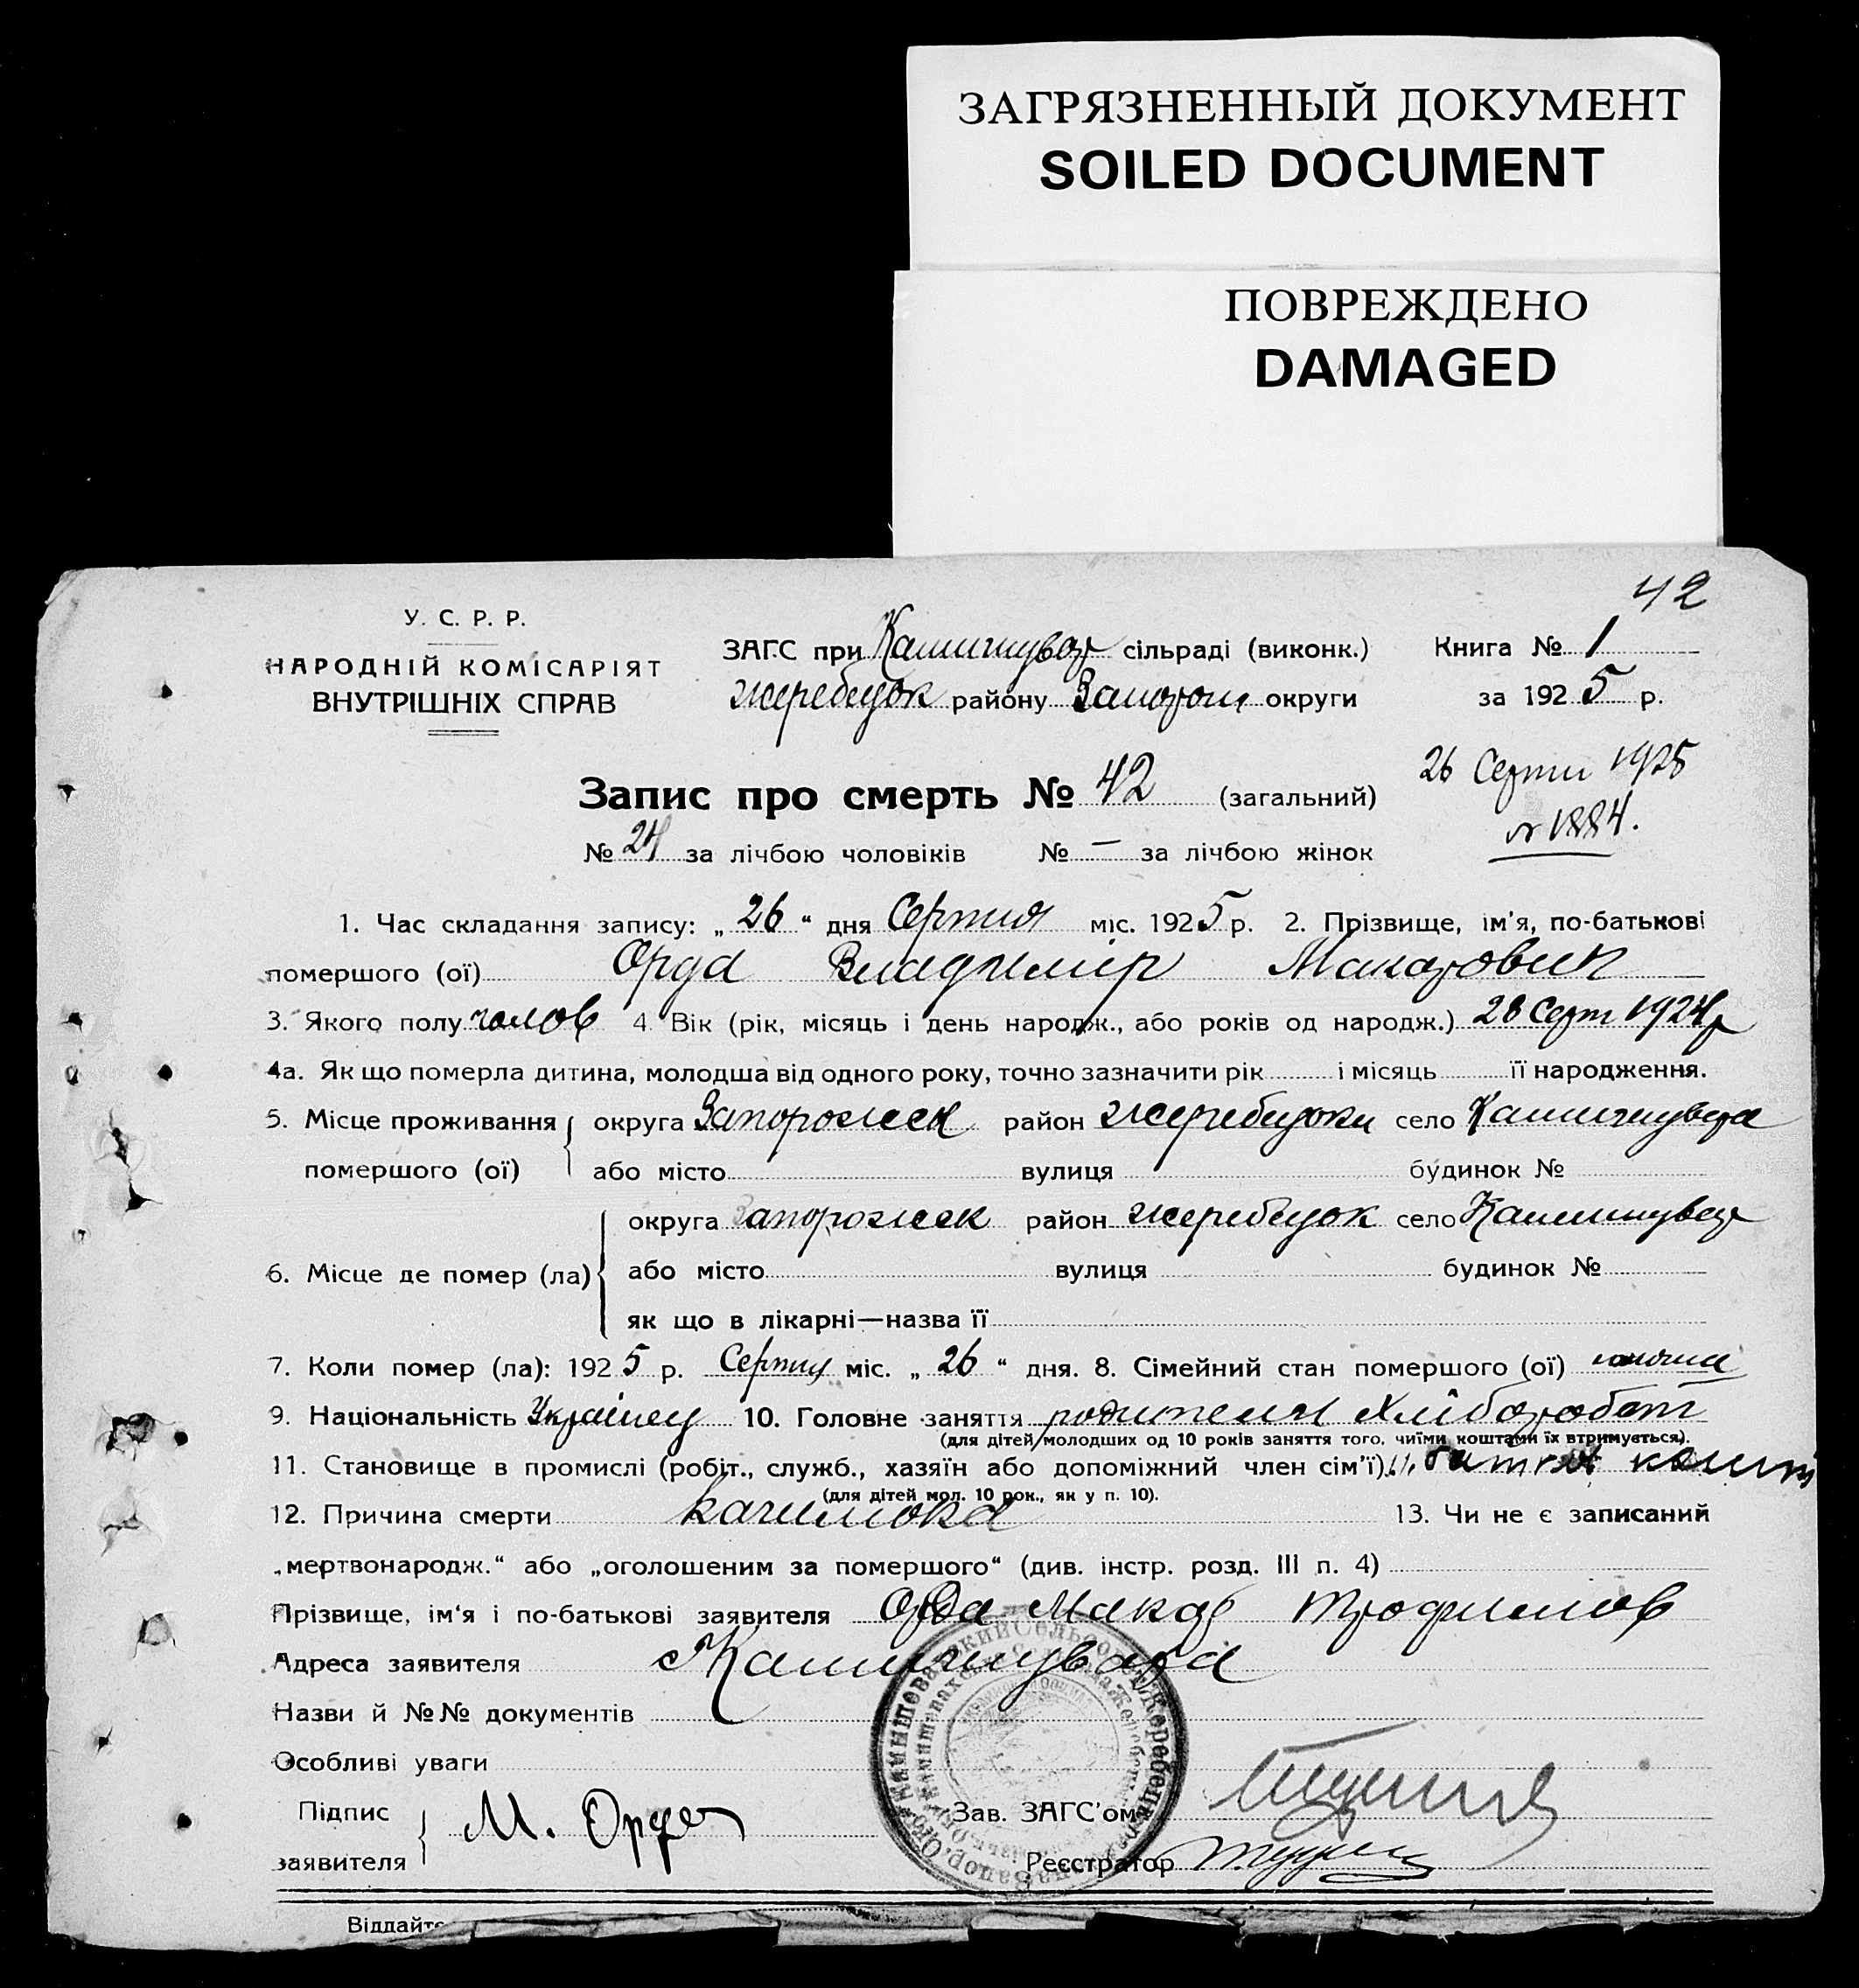 ЗАГРЯЗНЕННЫЙ ДОКУМЕНТ
SOILED DOCUMENT
ПОВРЕЖДЕНО
DAMAGED
42
У. С. Р. Р.
НАРОДНІЙ КОМІСАРІЯТ
ВНУТРІШНІХ СПРАВ
ЗАГС при сільраді (виконк.)
Жеребцьок району Запорож округи
Книга № 1
за 1925 р.
26 Серпн 1925
№ 1884.
Запис про смерть № 42 (загальний)
№ 24 за лічбою чоловіків № — за лічбою жінок
1. Час складання запису: „ 26 “ дня Серпня міс. 1925 р. 2. Прізвище, ім'я, по-батькові
помершого (ої) Орда Владимір Макарович
3. Якого полу чолов 4. Вік (рік, місяць і день народж., або років од народж.) 28 Серп 1924 р
4а. Як що померла дитина, молодша від одного року, точно зазначити рік і місяць її народження.
5. Місце проживання помершого (ої)
округа Запорожск район село
або місто вулиця будинок №
6. Місце де помер (ла)
округа Запорожск район село
або місто вулиця будинок №
як що в лікарні—назва її
7. Коли помер (ла): 1925 р. Серпня міс. „ 26 “ дня. 8. Сімейний стан помершого (ої)
9. Національність Українец 10. Головне заняття родителя Хлібороб
(для дітей молодших од 10 років заняття того, чиїми коштами їх втримується).
11. Становище в промислі (робіт., служб., хазяїн або допоміжний член сім'ї)
(для дітей мол. 10 рок., як у п. 10).
12. Причина смерти 13. Чи не є записаний
„мертвонародж.“ або „оголошеним за помершого“ (див. інстр. розд. III п. 4)
Прізвище, ім'я і по-батькові заявителя Орда Макар Трофимов
Адреса заявителя
Назви й №№ документів
Особливі уваги
Підпис заявителя М. Орда
Зав. ЗАГС'ом
Реєстратор
Віддайте